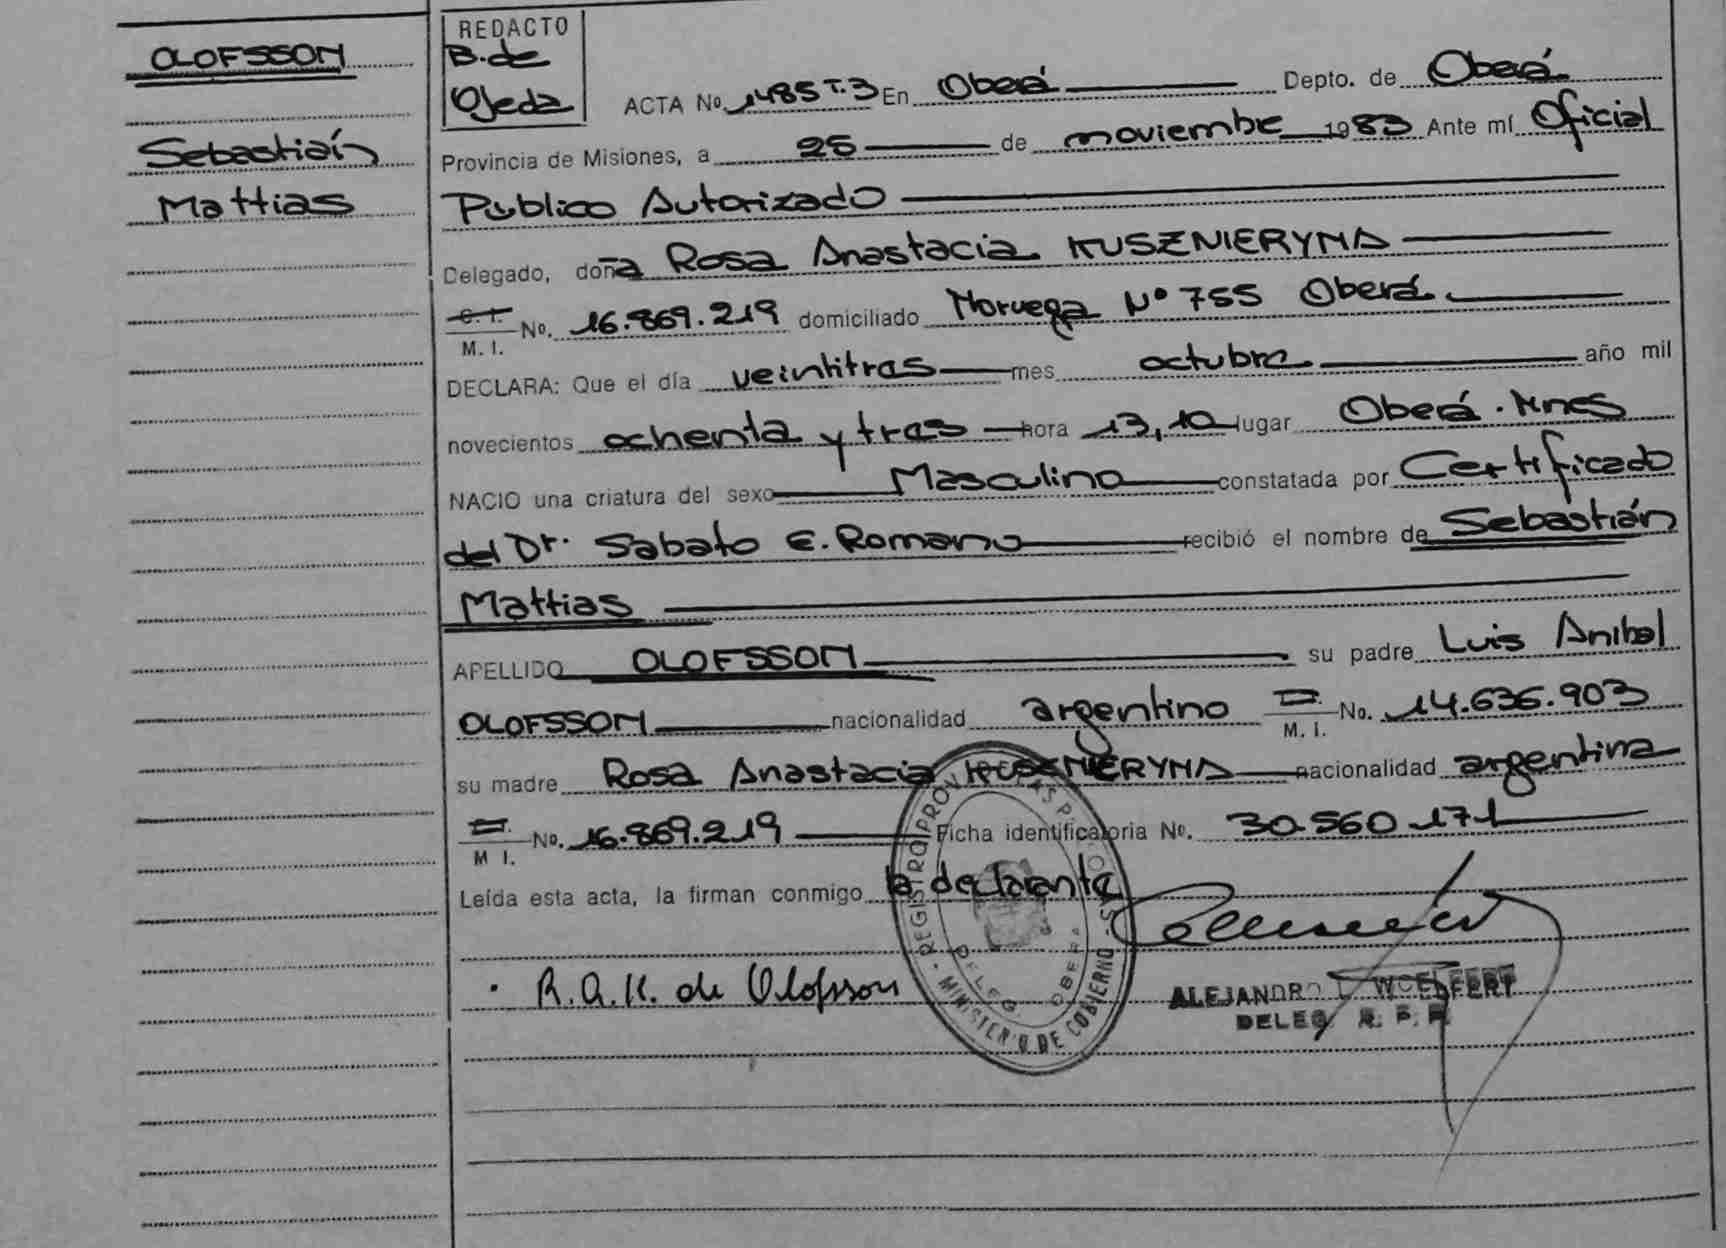 OLOFSSON
Sebastián
Mattias
REDACTO
B. de
Ojeda
ACTA No 1485 T.3 En Oberá Depto. de Oberá
Provincia de Misiones, a 25 de noviembre 1983 Ante mí Oficial
Público Autorizado
Delegado, doña Rosa Anastacia KUSZNIERYNA
C. I.
M. I. No. 16.869.219 domiciliado Noruega Nº 755 Oberá
DECLARA: Que el día veintitres mes octubre año mil
novecientos ochenta y tres hora 13,10 lugar Oberá. Mnes
NACIO una criatura del sexo Masculino constatada por Certificado
del Dr. Sabato E. Romano recibió el nombre de Sebastián
Mattias
APELLIDO OLOFSSON su padre Luis Anibal
OLOFSSON nacionalidad argentino M. I. No. 14.636.903
su madre Rosa Anastacia KUSZNIERYNA nacionalidad argentina
M I. No. 16.869.219 Ficha identificatoria No. 30.560.171
Leída esta acta, la firman conmigo la declarante
R.A.K. de Olofsson
REGISTRO PROV. DE LAS PERSONAS
MINISTERIO DE GOBIERNO
DELEG. OBERA
ALEJANDRO WOELFERT
DELEG. R. P. P.